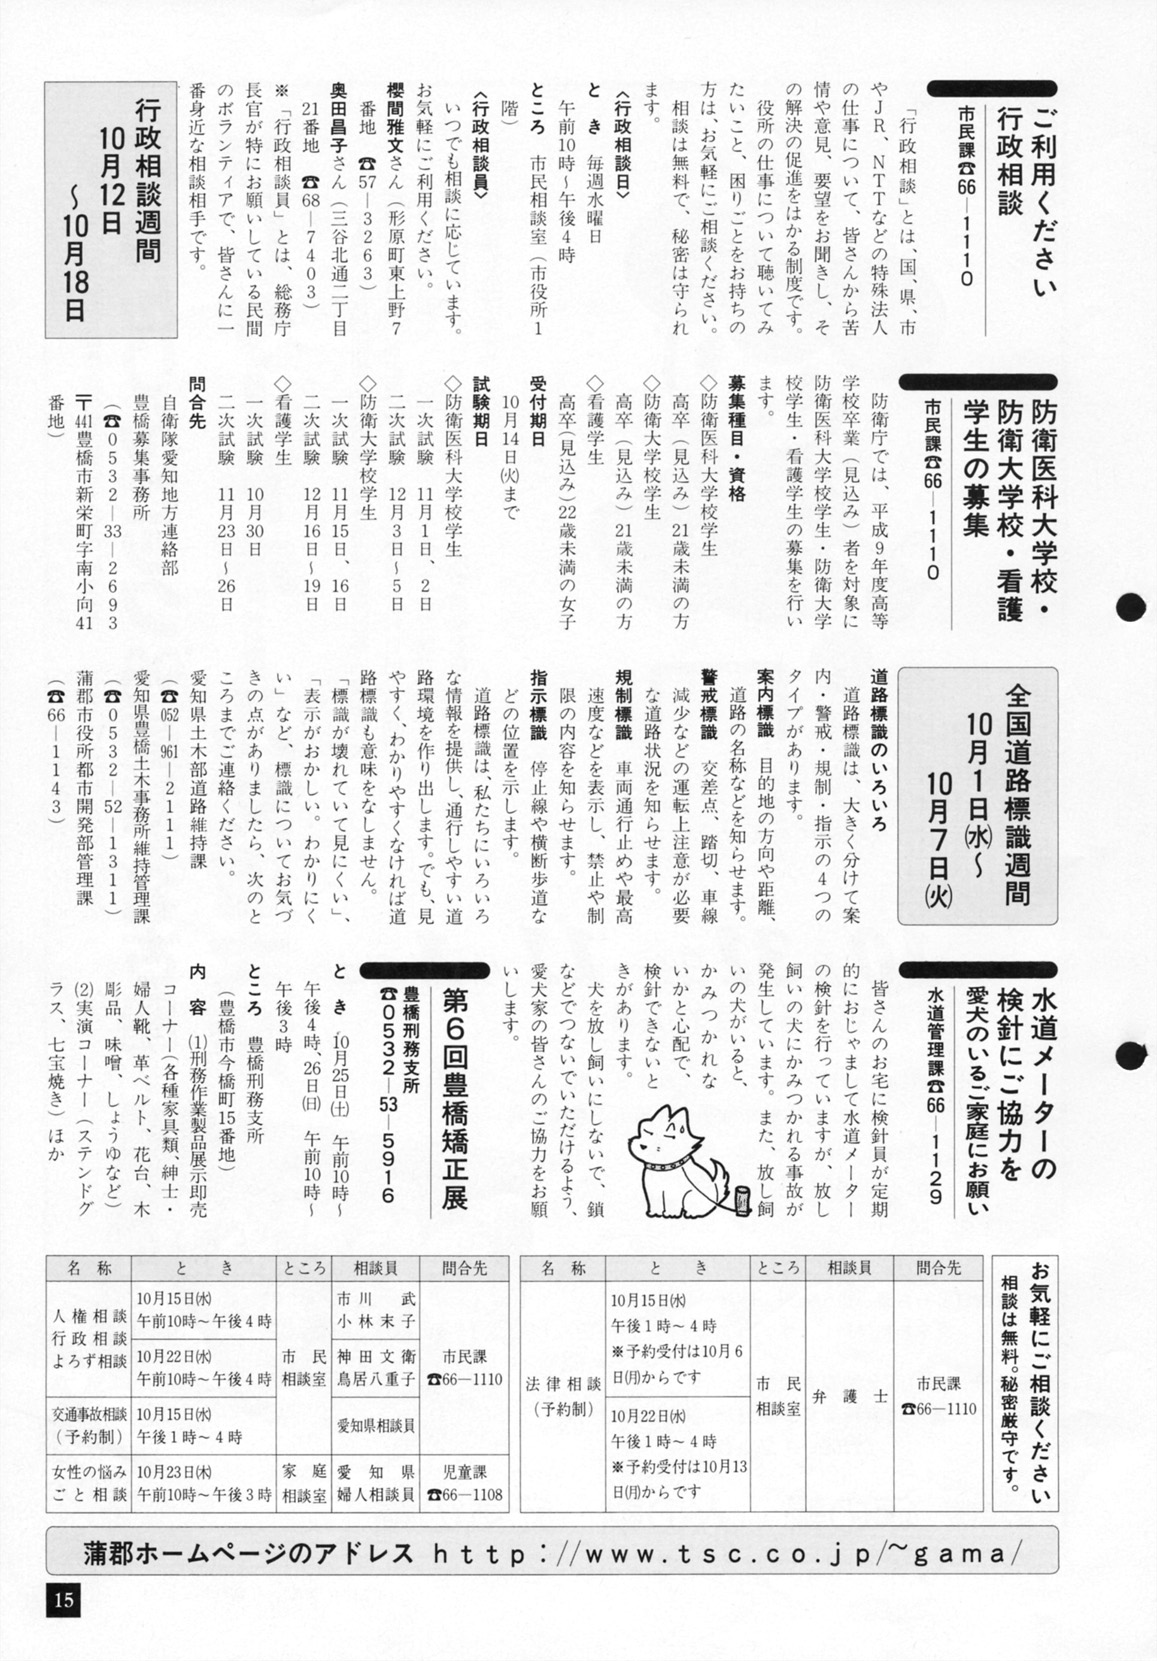 ご利用ください
行政相談
市民課☎66―1110
「行政相談」とは、国、県、市
やJR、NTTなどの特殊法人
の仕事について、皆さんから苦
情や意見、要望をお聞きし、そ
の解決の促進をはかる制度です。
役所の仕事について聴いてみ
たいこと、困りごとをお持ちの
方は、お気軽にご相談ください。
相談は無料で、秘密は守られ
ます。
〈行政相談日〉
と き 毎週水曜日
午前10時～午後4時
ところ 市民相談室（市役所1
階）
〈行政相談員〉
いつでも相談に応じています。
お気軽にご利用ください。
櫻間雅文さん（形原町東上野7
番地 ☎57―3263）
奥田昌子さん（三谷北通二丁目
21番地 ☎68―7403）
※「行政相談員」とは、総務庁
長官が特にお願いしている民間
のボランティアで、皆さんに一
番身近な相談相手です。
行政相談週間
10月12日
～10月18日
防衛医科大学校・
防衛大学校・看護
学生の募集
市民課☎66―1110
防衛庁では、平成9年度高等
学校卒業（見込み）者を対象に
防衛医科大学校学生・防衛大学
校学生・看護学生の募集を行い
ます。
募集種目・資格
◇防衛医科大学校学生
高卒（見込み）21歳未満の方
◇防衛大学校学生
高卒（見込み）21歳未満の方
◇看護学生
高卒（見込み）22歳未満の女子
受付期日
10月14日㈫まで
試験期日
◇防衛医科大学校学生
一次試験 11月1日、2日
二次試験 12月3日～5日
◇防衛大学校学生
一次試験 11月15日、16日
二次試験 12月16日～19日
◇看護学生
一次試験 10月30日
二次試験 11月23日～26日
問合先
自衛隊愛知地方連絡部
豊橋募集事務所
（☎0532―33―2693
〒441豊橋市新栄町字南小向41
番地）
全国道路標識週間
10月1日㈬～
10月7日㈫
道路標識のいろいろ
道路標識は、大きく分けて案
内・警戒・規制・指示の4つの
タイプがあります。
案内標識 目的地の方向や距離、
道路の名称などを知らせます。
警戒標識 交差点、踏切、車線
減少などの運転上注意が必要
な道路状況を知らせます。
規制標識 車両通行止めや最高
速度などを表示し、禁止や制
限の内容を知らせます。
指示標識 停止線や横断歩道な
どの位置を示します。
道路標識は、私たちにいろいろ
な情報を提供し、通行しやすい道
路環境を作り出します。でも、見
やすく、わかりやすくなければ道
路標識も意味をなしません。
「標識が壊れていて見にくい」、
「表示がおかしい。わかりにく
い」など、標識についてお気づ
きの点がありましたら、次のと
ころまでご連絡ください。
愛知県土木部道路維持課
（☎052―961―2111）
愛知県豊橋土木事務所維持管理課
（☎0532―52―1311）
蒲郡市役所都市開発部管理課
（☎66―1143）
水道メーターの
検針にご協力を
愛犬のいるご家庭にお願い
水道管理課☎66―1129
皆さんのお宅に検針員が定期
的におじゃまして水道メーター
の検針を行っていますが、放し
飼いの犬にかみつかれる事故が
発生しています。また、放し飼
いの犬がいると、
かみつかれな
いかと心配で、
検針できないと
きがあります。
犬を放し飼いにしないで、鎖
などでつないでいただけるよう、
愛犬家の皆さんのご協力をお願
いします。
第6回豊橋矯正展
豊橋刑務支所
☎0532―53―5916
と き 10月25日㈯ 午前10時～
午後4時、26日㈰ 午前10時～
午後3時
ところ 豊橋刑務支所
（豊橋市今橋町15番地）
内 容 ⑴刑務作業製品展示即売
コーナー（各種家具類、紳士・
婦人靴、革ベルト、花台、木
彫品、味噌、しょうゆなど）
⑵実演コーナー（ステンドグ
ラス、七宝焼き）ほか
お気軽にご相談ください
相談は無料。秘密厳守です。
名 称 と き ところ 相談員 問合先
法律相談
（予約制）
10月15日㈬
午後1時～4時
※予約受付は10月6
日㈪からです
10月22日㈬
午後1時～4時
※予約受付は10月13
日㈪からです
市 民
相談室
弁 護 士
市民課
☎66―1110
名 称 と き ところ 相談員 問合先
人権相談
行政相談
よろず相談
10月15日㈬
午前10時～午後4時
市川 武
小林末子
10月22日㈬
午前10時～午後4時
市 民
相談室
神田文衛
鳥居八重子
市民課
☎66―1110
交通事故相談
（予約制）
10月15日㈬
午後1時～4時
愛知県相談員
女性の悩み
ごと相談
10月23日㈭
午前10時～午後3時
家 庭
相談室
愛 知 県
婦人相談員
児童課
☎66―1108
蒲郡ホームページのアドレス http://www.tsc.co.jp/~gama/
15